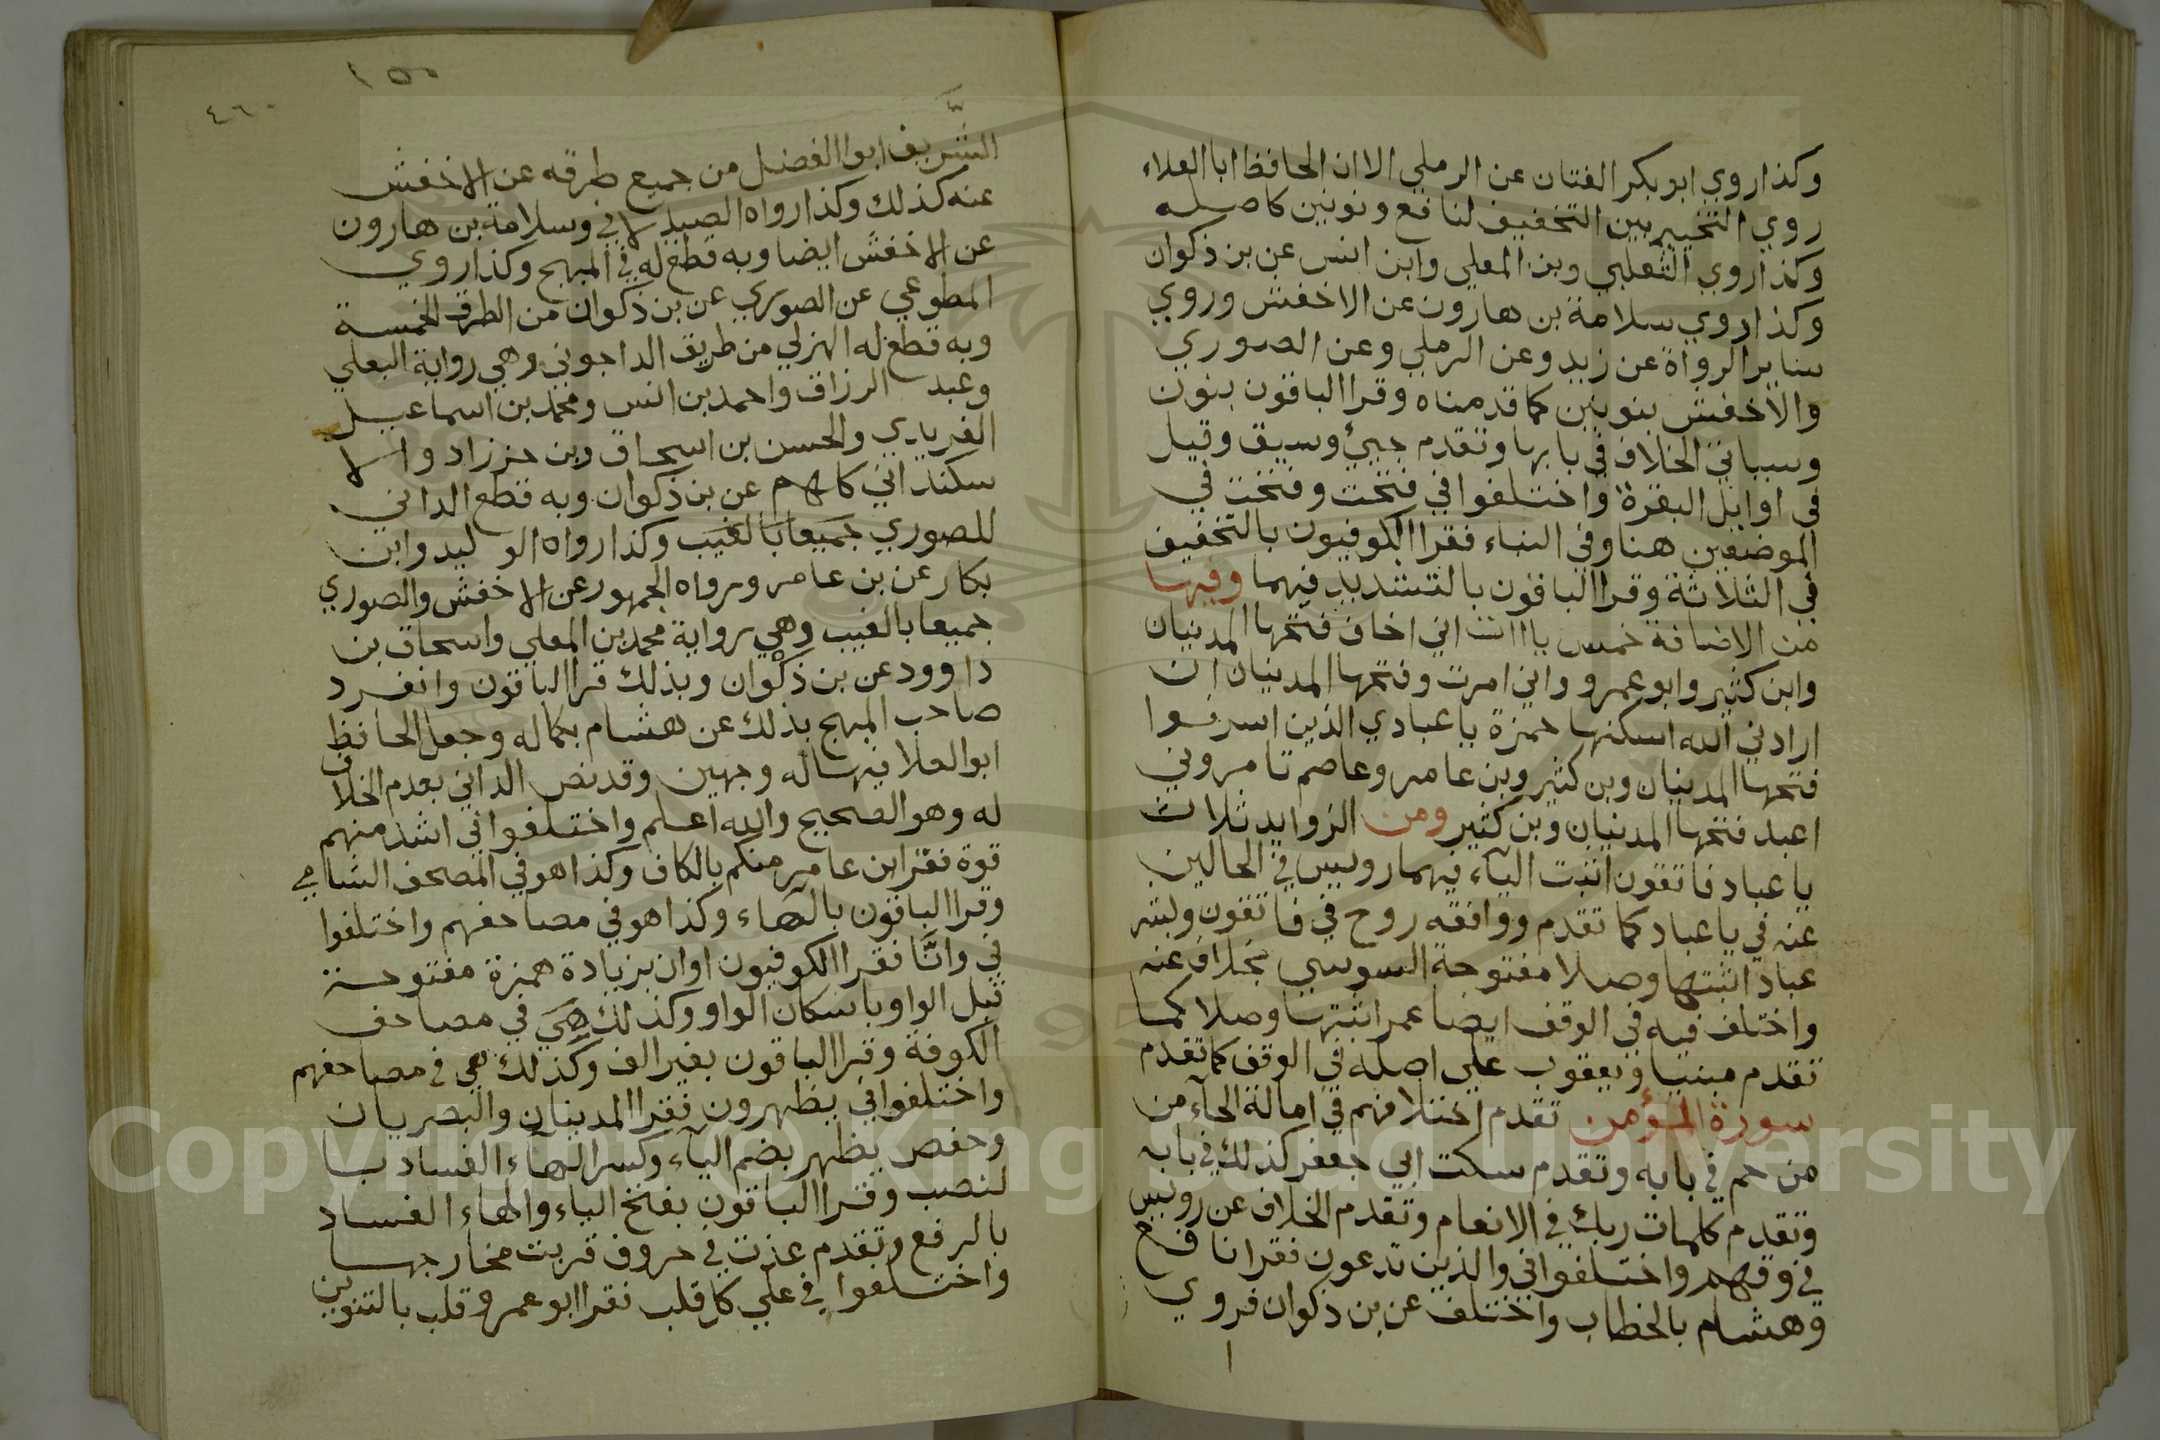 وكذا روي ابو بكر الفتان عن الرملي الا ان الحافظ ابا العلاء
روي التخيير بين التخفيف لنافع ونونين كاصله
وكذا روي الثعلبي وبن المعلي وابن انس عن بن ذكوان
وكذا روي سلامة بن هارون عن الاخفش وروي
ساير الرواة عن زيد وعن الرملي وعن الصوري
والاخفش بنونين كما قدمناه وقرا الباقون بنون
وسياتي الخلاف في بابها وتقدم جيئ وسيق وقيل
في اوايل البقرة واختلفوا في فتحت وفتحت في
الموضعين هنا وفي النباء فقرا الكوفيون بالتخفيف
في الثلاثة وقرا الباقون بالتشديد فيهما وفيها
من الاضافة خمس ياات اني اخاف فتحها المدنيان
وابن كثير وابو عمرو واني امرت وفتحها المدنيان ان
ارادني الله اسكنها حمزة يا عبادي الذين اسرفوا
فتحها المدنيان وبن كثير وبن عامر وعاصم تامروني
اعبد فتحها المدنيان وبن كثير ومن الزوايد ثلاث
يا عباد فاتقون اثبت الياء فيهما رويس في الحالين
عنه في يا عباد كما تقدم ووافقه روح في فاتقون ولبشر
عباد اثبتها وصلا مفتوحة السوسي بخلاف عنه
واختلف فيه في الوقف ايضا عمر اثبتها وصلا كما
تقدم مبنيا ويعقوب علي اصله في الوقف كما تقدم
سورة المؤمن تقدم اختلافهم في امالة الحاء من
من حم في بابه وتقدم سكت ابي جعفر كذلك في بابه
وتقدم كلمات ربك في الانعام وتقدم الخلاف عن رويس
في وقهم واختلفوا في والذين تدعون فقرا نافع
وهشام بالخطاب واختلف عن بن ذكوان فروي
١٥٠
٤٦٠
الشريف ابوا الفضل من جميع طرقه عن الاخفش
عنه كذلك وكذا رواه الصيدلاني وسلامة بن هارون
عن الاخفش ايضا وبه قطع له في المبهج وكذا روي
المطوعي عن الصوري عن بن ذكوان من الطرق الخمسة
وبه قطع له الهزلي من طريق الداجوني وهي رواية الثعلبي
وعبد الرزاق واحمد بن انس ومحمد بن اسماعيل
الفريدي والحسن بن اسحاق وبن خرزاد والا
سكندراني كلهم عن بن ذكوان وبه قطع الداني
للصوري جميعا بالغيب وكذا رواه الوليد وابن
بكار عن بن عامر ورواه الجمهور عن الاخفش والصوري
جميعا بالغيب وهي رواية محمد بن المعلي واسحاق بن
داوود عن بن ذكوان وبذلك قرا الباقون وانفرد
صاحب المبهج بذلك عن هشام بكماله وجعل الحافظ
ابو العلا فيها له وجهين وقد نص الداني بعدم الخلاف
له وهو الصحيح والله اعلم واختلفوا في اشد منهم
قوة فقرا ابن عامر منكم بالكاف وكذا هو في المصحف الشامي
وقرا الباقون بالهاء وكذا هو في مصاحفهم واختلفوا
في وانّا فقرا الكوفيون اوان بزيادة همزة مفتوحة
قبل الواو باسكان الواو وكذلك هي في مصاحف
الكوفة وقرا الباقون بغير الف وكذلك هي في مصاحفهم
واختلفوا في يظهرون فقرا المدنيان والبصريان
وحفص يظهر بضم الياء وكسر الهاء الفساد با
لنصب وقرا الباقون بفتح الياء والهاء الفساد
بالرفع وتقدم عذت في حروف قربت مخارجها
واختلفوا في علي كل قلب فقرا ابو عمرو قلب بالتنوين
Copyright © King Saud University